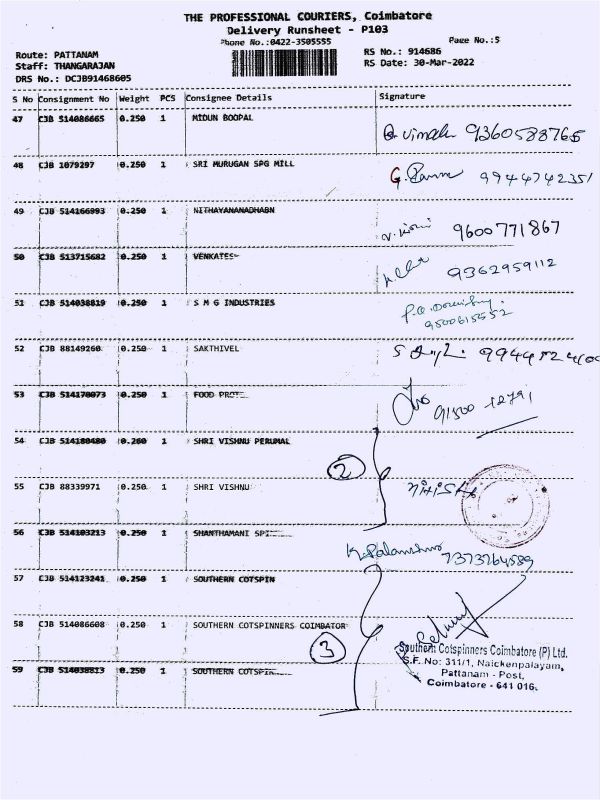 THE PROFESSIONAL COURIERS, Coimbatore
Delivery Runsheet - P103
Phone No.:0422-3505555 Page No.:5
Route: PATTANAM RS No.: 914686
Staff: THANGARAJAN RS Date: 30-Mar-2022
DRS No.: DCJB91468605
S No Consignment No Weight PCS Consignee Details Signature
47 CJB 514086665 0.250 1 MIDUN BOOPAL
9360588765
48 CJB 1079297 0.250 1 SRI MURUGAN SPG MILL
9944742351
49 CJB 514166993 0.250 1 NITHAYANANADHABN
9600771867
50 CJB 513715682 0.250 1 VENKATES
9362959112
51 CJB 514038819 0.250 1 S M G INDUSTRIES
9500615552
52 CJB 88149260 0.250 1 SAKTHIVEL
53 CJB 514170073 0.250 1 FOOD PROTE
91500 12791
54 CJB 514180480 0.260 1 SHRI VISHNU PERUMAL
2
55 CJB 88339971 0.250 1 SHRI VISHNU
56 CJB 514103213 0.250 1 SHANTHAMANI SPI
7373764589
57 CJB 514123241 0.250 1 SOUTHERN COTSPIN
58 CJB 514086608 0.250 1 SOUTHERN COTSPINNERS COIMBATOR
3
Southern Cotspinners Coimbatore (P) Ltd.
S.F. No: 311/1, Naickenpalayam,
Pattanam - Post,
Coimbatore - 641 016.
59 CJB 514038813 0.250 1 SOUTHERN COTSPIN